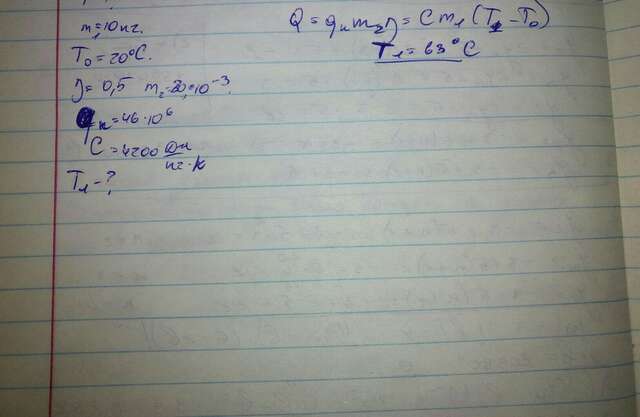 m₁=10кг.
T₀=20°C.
η=0,5 m₂=20·10⁻³.
qк=46·10⁶
C=4200 Дж/кг·К
T₁-?
Q=qкm₂η=Cm₁(T₁-T₀)
T₁=63°C